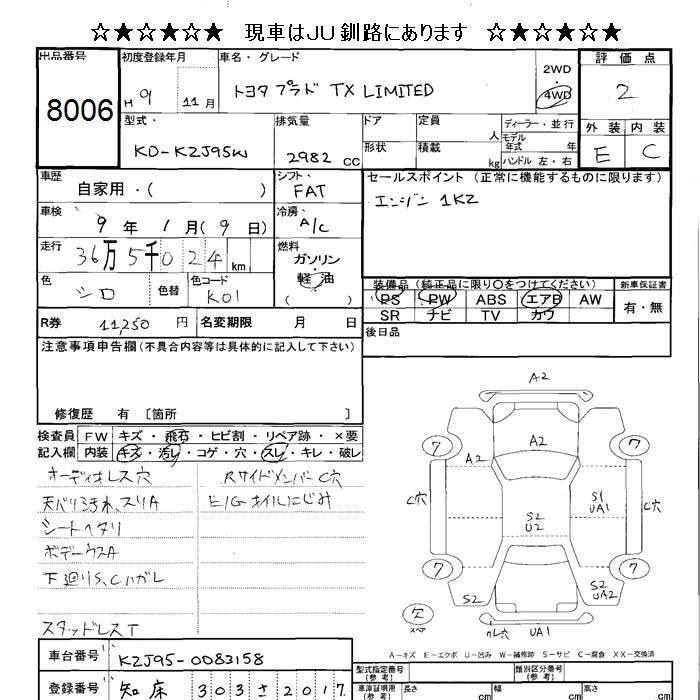 ☆★☆★☆★ 現車はJU釧路にあります ☆★☆★☆★
出品番号 初度登録年月 車名・グレード 評価点
8006 H 9 11月 トヨタ プラド TX LIMITED 2WD 4WD 2
型式・ 排気量 ドア 定員 人 ディーラー・並行 外装 内装
KD-KZJ95W 2982 CC 形状 積載 kg モデル年式 年 ハンドル 左・右 E C
車歴 自家用・( ) シフト・ FAT セールスポイント (正常に機能するものに限ります)
車検 9年 1月 (9日) 冷房・ A/C エンジン 1KZ
走行 36万5千024km 燃料 ガソリン
色 シロ 色替 色コード K01 ( 軽油 )
装備品 (純正品に限り○をつけてください) 新車保証書
PS PW ABS エアB AW 有・無
SR ナビ TV カワ
R券 11,250円 名変期限 月 日 後日品
注意事項申告欄(不具合内容等は具体的に記入して下さい)
修復歴 有 〔箇所 〕
検査員 FW キズ・飛石・ヒビ割・リペア跡・×要
記入欄 内装 キズ・汚レ・コゲ・穴・スレ・キレ・破レ
オーディオレス穴 RサイドメンバーC穴
天バリ汚れ、スリA E/Gオイルにじみ
シートヘタリ
ボデーウスA
下廻りS、Cハガレ
スタッドレスT
A2
A2
7 7
A2
C穴 S1 UA1 C穴
S2 U2
7 7
S2 S2 UA2
欠 スペア クレ穴 UA1
A-キズ E-エクボ U-凹み W-補修跡 S-サビ C-腐食 XX-交換済
車台番号 KZJ95-0083158
型式指定番号 (参考) 類別区分番号 (参考)
登録番号 知床 303さ2017
車庫証明用 (参考) 長さ cm 幅 cm 高さ cm